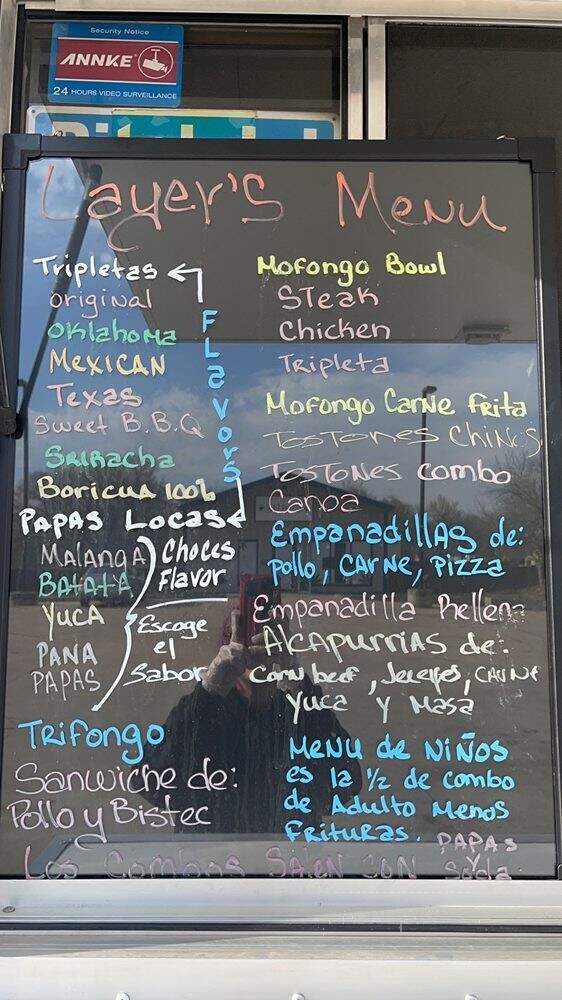 Security Notice
ANNKE
24 HOURS VIDEO SURVEILLANCE
Layer's Menu
Tripletas
original
Oklahoma
MEXICAN
Texas
Sweet B.B.Q
SRIRACHA
Boricua 100%
FLavors
PAPAS LOCAS
MALANGA
BATATA
YUCA
PANA
PAPAS
Choces
Flavor
Escoge
el
Sabor
TRIFONGO
Sanwiche de:
Pollo y Bistec
Mofongo Bowl
STeak
Chicken
TRipleta
Mofongo Carne Frita
TOSTONES
TOSTONES combo
Canoa
Empanadillas de:
Pollo, CARNE, Pizza
Empanadilla Rellena
Alcapurrias de:
Corn beef, Jueyes, CARNE
Yuca y Masa
MeNU de NIÑOS
es la 1/2 de combo
de Adulto Menos
FRITURAS.
PAPAS
y
Los Combos Salen CON Soda